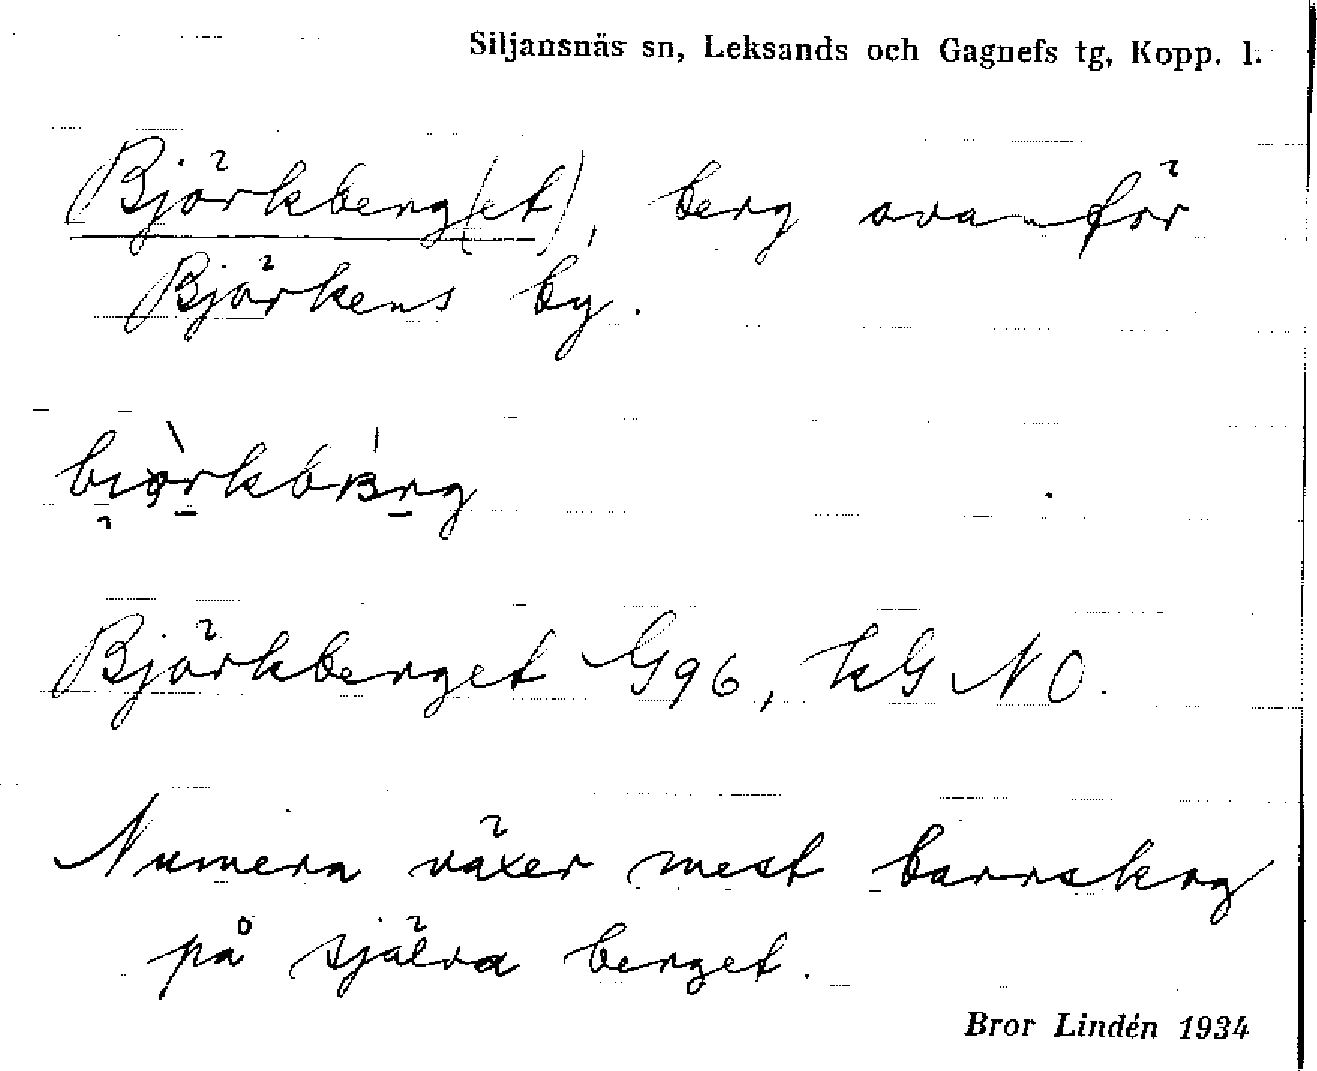 Siljansnäs sn, Leksands och Gagnefs tg, Kopp. l.
Björkberg(et), berg ovanför
Björkens by.
Björkberget G96, kG NO.
Numera växer mest barrskog
på själva berget.
Bror Lindén 1934